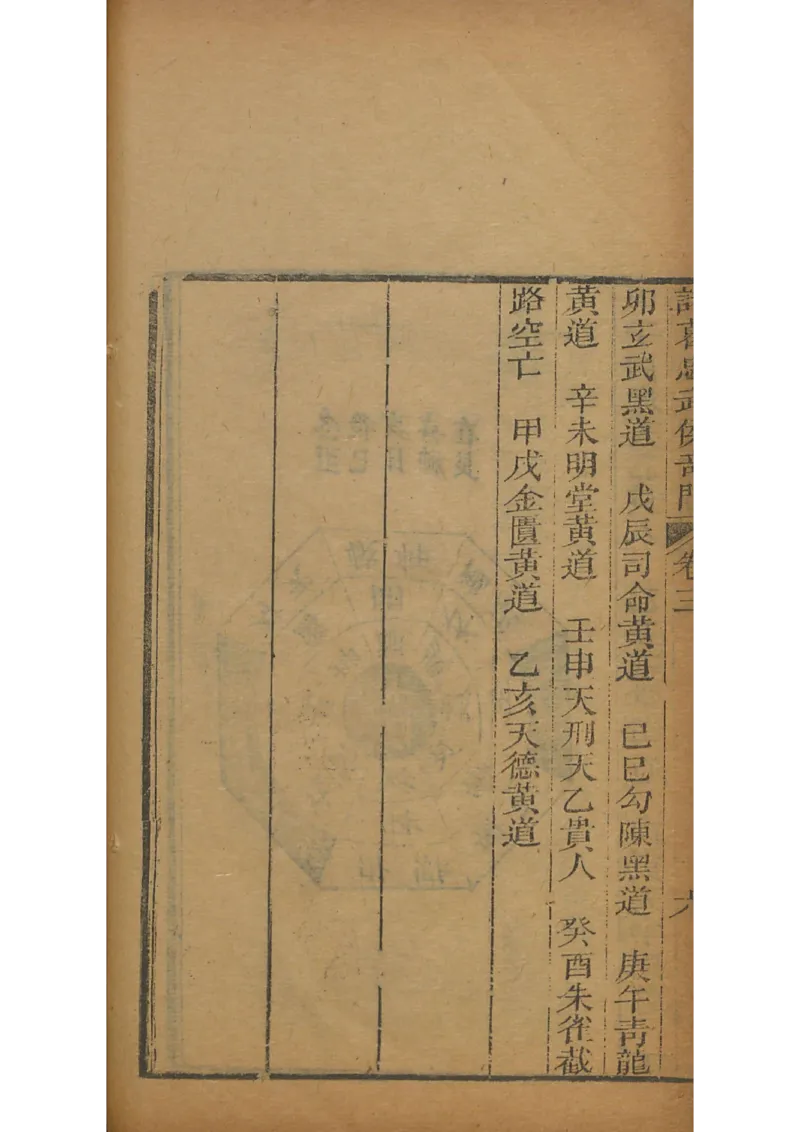 諸葛忠武侯奇門 卷三 六
卯玄武黑道 戊辰司命黃道 己巳勾陳黑道 庚午青龍
黃道 辛未明堂黃道 壬申天刑天乙貴人 癸酉朱雀截
路空亡 甲戌金匱黃道 乙亥天德黃道